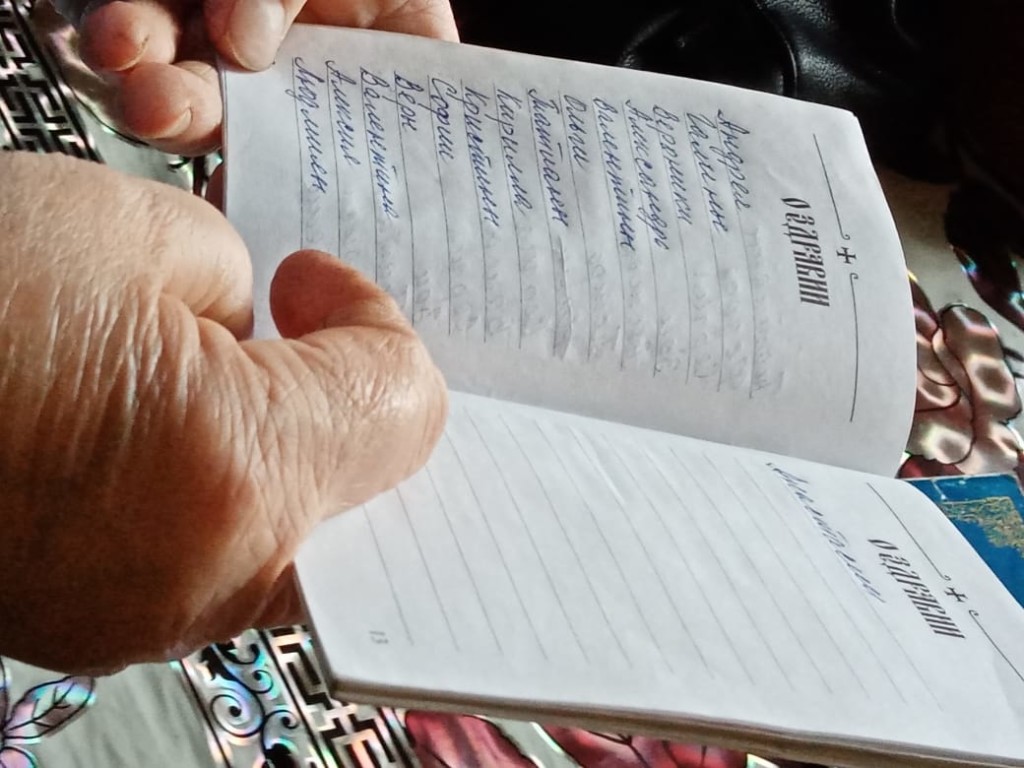 О ЗДРАВИИ
Андрея
Галины
Вероники
Александр
Валентины
Ольги
Татианы
Кирилла
Софии
Веры
Валентины
Алексия
Людмилы
О ЗДРАВИИ
23